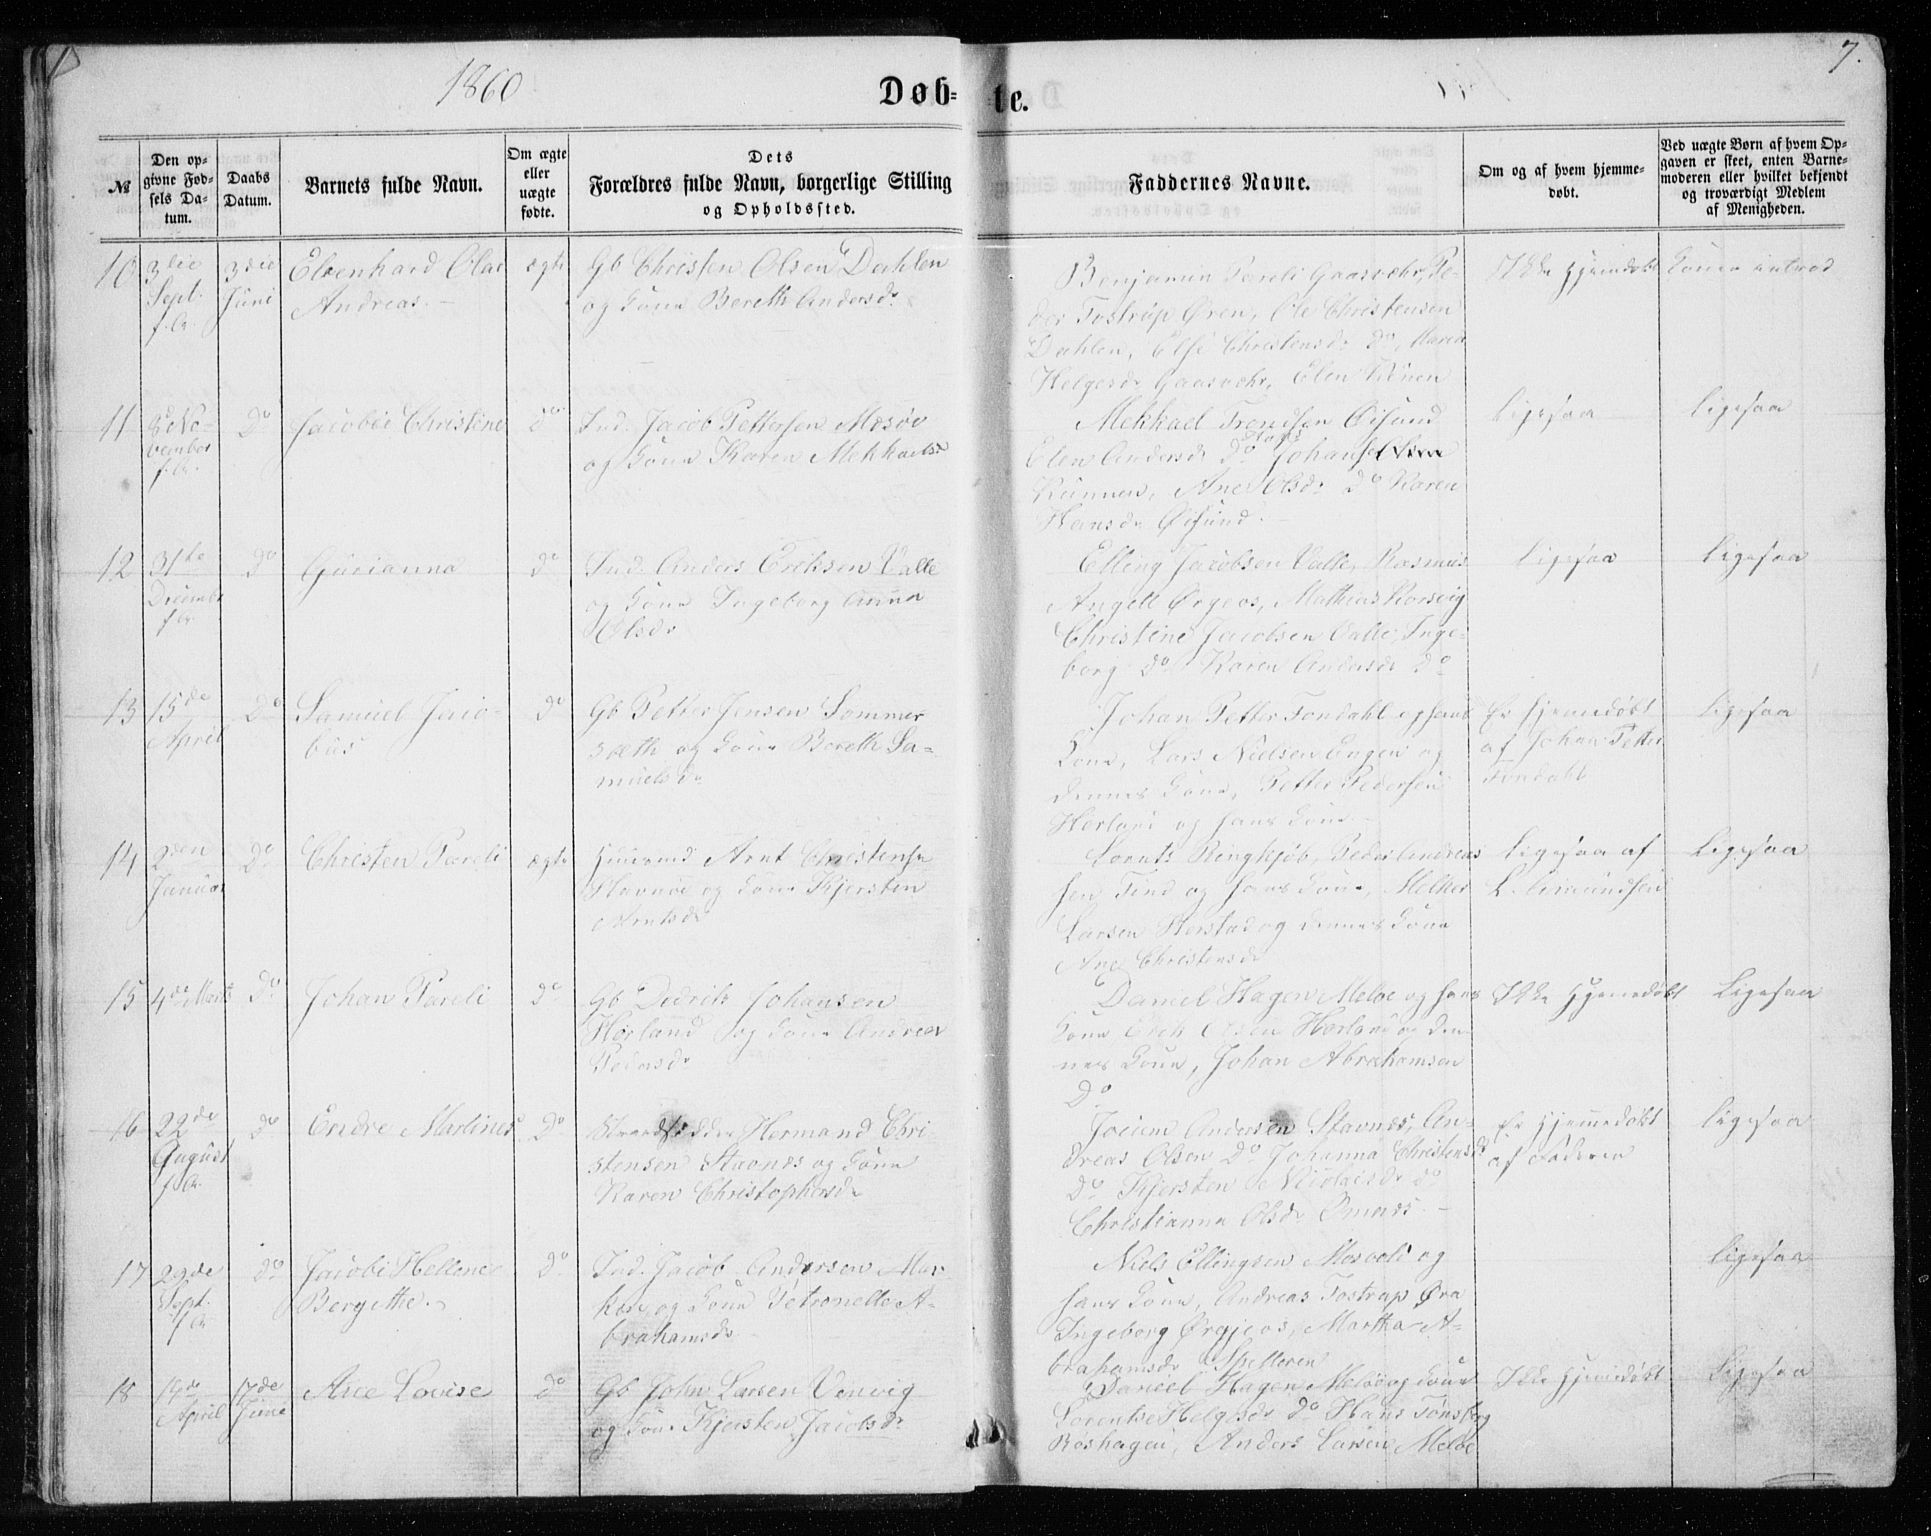 1860
Døb-
te.
7.
№
Den op-
givne Fød-
sels Da-
tum.
Daabs
Datum.
Barnets fulde Navn.
Om ægte
eller
uægte
fødte.
Dets
Forældres fulde Navn, borgerlige Stilling
og Opholdssted.
Faddernes Navne.
Om og af hvem hjemme-
døbt.
Ved uægte Børn af hvem Op-
gaven er skeet, enten Barne-
moderen eller hvilket bekjendt
og troværdigt Medlem
af Menigheden.
10
3die
Sept.
f. A.
3die
Juni
Andreas.
ægte
Gb Christen Olsen Dahlen
og Kone Bereth Andersdr
Benjamin Pareli Gaasvær, Pe-
der Tostrup Øren, Ole Christensen
Dahlen, Else Christensdr Do, Maren
Helgesdr Gaasvær, Elen
Ikke hjemdøbt
Konen introd
11
8de No-
vember
f. A.
Do
Jacobie Christine
do
Ind. Jacob Pettersen Mesøe
og Kone Karen Mekkaelsdr
Mekkael Trondsen Øisund
Elen Andersdr Do Johans
Kunnen, Ane Olsdr Do Karen
Hansdr Øisund.
ligesaa
ligesaa
12
31te
December
f. A.
Do
Gurianna
do
Ind. Anders Eriksen Valle
og Kone Ingeborg Anna
Olsdr
Elling Jacobsen Valle, Rasmus
Angell Ørgeos, Mathias Korsvig
Christine Jacobsen Valle, Inge-
borg Do Karen Andersdr do
ligesaa
ligesaa
13
15de
April
Do
Samuel Jaco-
bus
do
Gb Petter Jensen Sommer
sæth og Kone Bereth Sa-
muelsdr
Johan Petter Fondahl og hans
Kone, Lars Nielsen Engen og
dennes Kone, Petter Pedersen
Horland og hans Kone
Er hjemdøbt
af Johan Petter
Fondahl
ligesaa
14
2den
Januar
Do
Christen Pareli
ægte
Huusmd Arnt Christensen
Stavnæs og Kone Kjersten
Arntsdr
Lorents Ringkjøb, Peder Andreas
sen Find og hans Kone, Melker
Larsen Horstad og dennes Kone
Ane Christensdr
ligesaa af
L. Amundsen
Ligesaa
15
4de Marts
Do
Johan Pareli
do
Gb Dedrik Johansen
Horland og Kone Andrea
Pedersdr
Daniel Hagen Meløe og hans
Kone Erik Olsen Horland og den-
nes Kone, Johan Abrahamsen
Do
Ikke hjemedøbt
Ligesaa
16
22de
August
f. A.
do
Endre Martines
Do
Strandsidder Hermand Chri-
stensen Stavnes og Kone
Karen Christophersdr
Jocum Andersen Stavnes, An-
dreas Olsen Do Johanna Christensdr
do Kjersten Nicolaisdr do
Christianna Olsdr
Er hjemmedøbt
af Faderen
ligesaa
17
29de
Sept.
f. A.
do
Jacobe Hellene
Bergithe.
do
Ind. Jacob Andersen Mar-
og Kone Petronelle A-
brahamsdr
Niels Ellingsen Mosvold og
hans Kone, Andreas Tostrup Øra
Ingeborg Ørgjeos, Martha A-
brahamsdr Spilleren
ligesaa
18
14de
April
17de
Juni
Ane Lovise
do
Gb John Larsen Venvig
og Kone Kjersten Jacobsdr
Daniel Hagen Meløe og Kone
Lorentse Helgesdr do Hans Tønsberg
Røshagen, Anders Larsen Meløe
Ikke hjemedøbt
Ligesaa